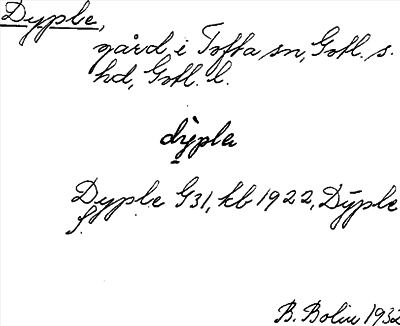 Dyple,
gård i Tofta sn, Gotl. s.
hd, Gotl. l.
dỳpla
Dyple G31, kb 1922, Dȳple
f.
B. Bolin 1932